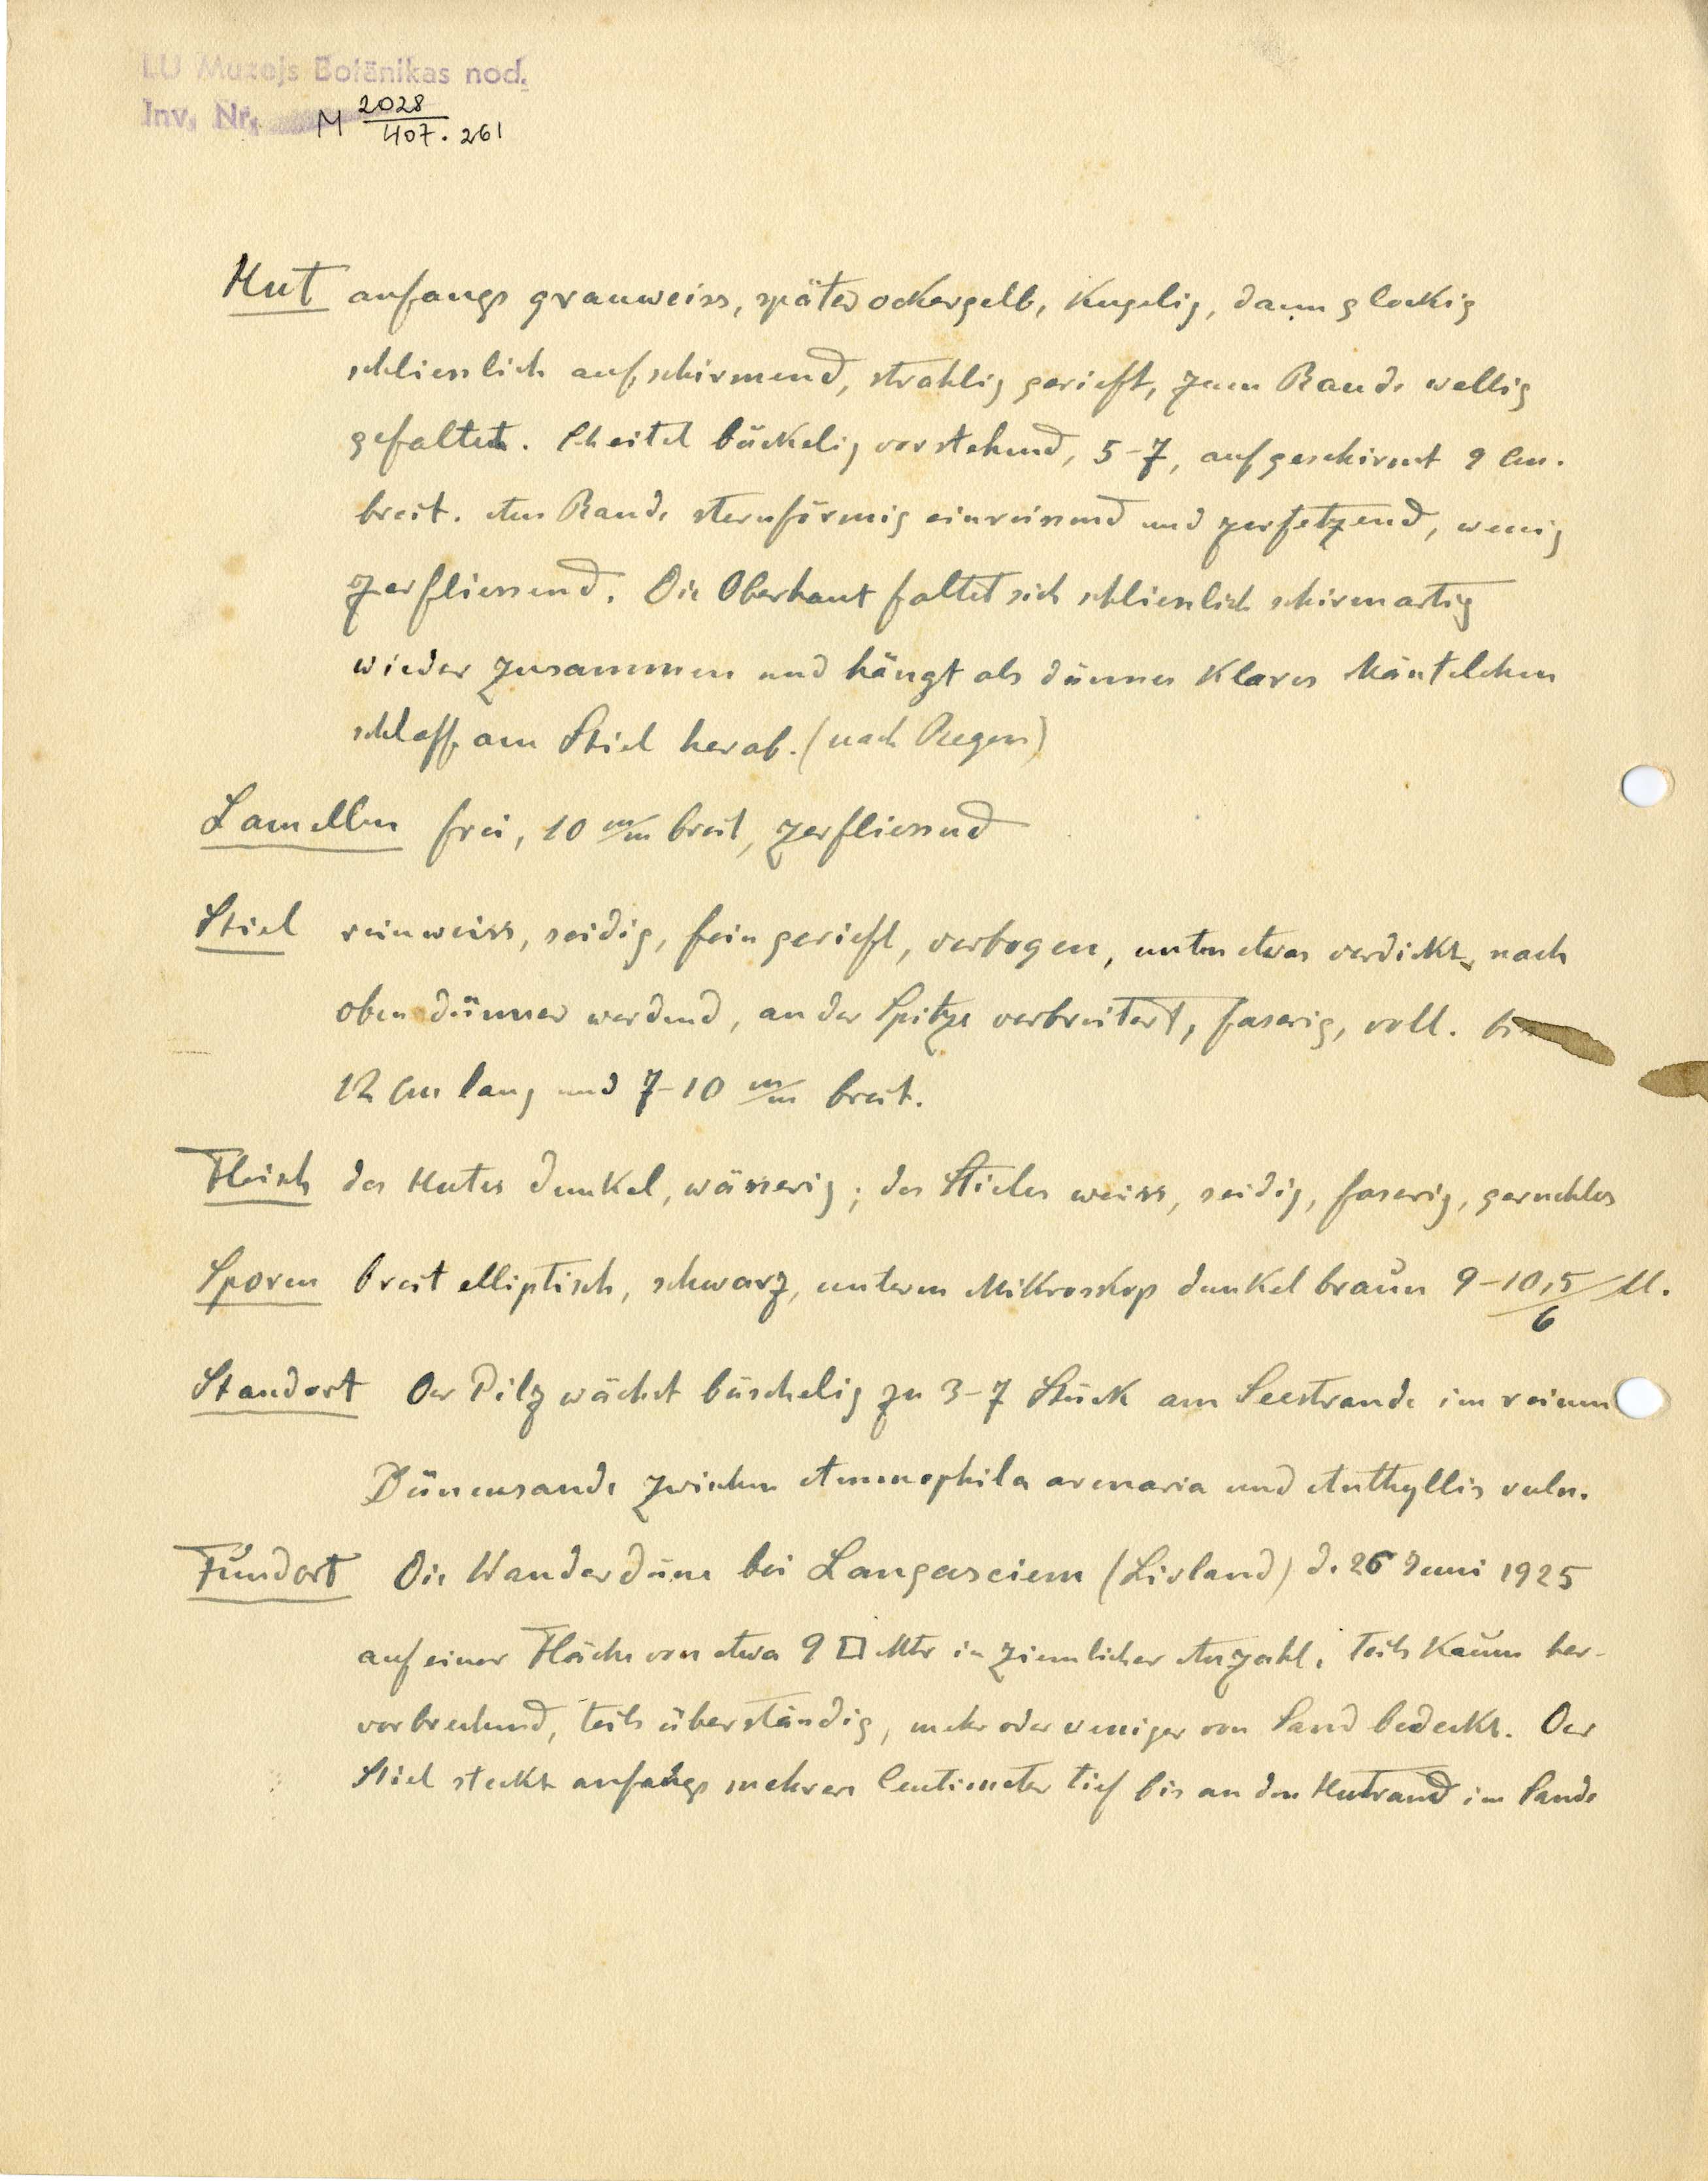 LU Muzejs Botānikas nod.
Inv. Nr. M 2028/407.261
Hut anfangs grauweiss, später ockergelb, kugelig, dann glockig
schliesslich aufschirmend, strahlig gerieft, zum Rande wellig
gefaltet. Scheitel buckelig vorstehend, 5-7, aufgeschirmt 9 cm.
breit. Am Rande sternförmig einreissend und zerfetzend, wenig
zerfliessend. Die Oberhaut faltet sich schliesslich schirmartig
wieder zusammen und hängt als dünnes klares Mäntelchen
schlaff am Stiel herab. (nach Regen)
Lamellen frei, 10 m/m breit, zerfliessend
Stiel reinweiss, seidig, fein gerieft, verbogen, unten etwas verdickt, nach
oben dünner werdend, an der Spitze verbreitert, faserig, voll.
12 cm lang und 7-10 m/m breit.
Fleisch des Hutes dunkel, wässerig; des Stieles weiss, seidig, faserig, geruchlos
Sporen breit elliptisch, schwarz, unterm Mikroskop dunkel braun 9-10,5/6 M.
Standort Der Pilz wächst büschelig zu 3-7 Stück am Seestrande im reinen
Dünensande zwischen Ammophila arenaria und Anthyllis vuln.
Fundort Die Wanderdüne bei Langasciem (Livland) d. 26 Juni 1925
auf einer Fläche von etwa 9 □ Mtr in ziemlicher Anzahl. Teils kaum her-
vorbrechend, teils überständig, mehr oder weniger von Sand bedeckt. Der
Stiel steckt anfangs mehrere Centimeter tief bis an den Hutrand im Sande